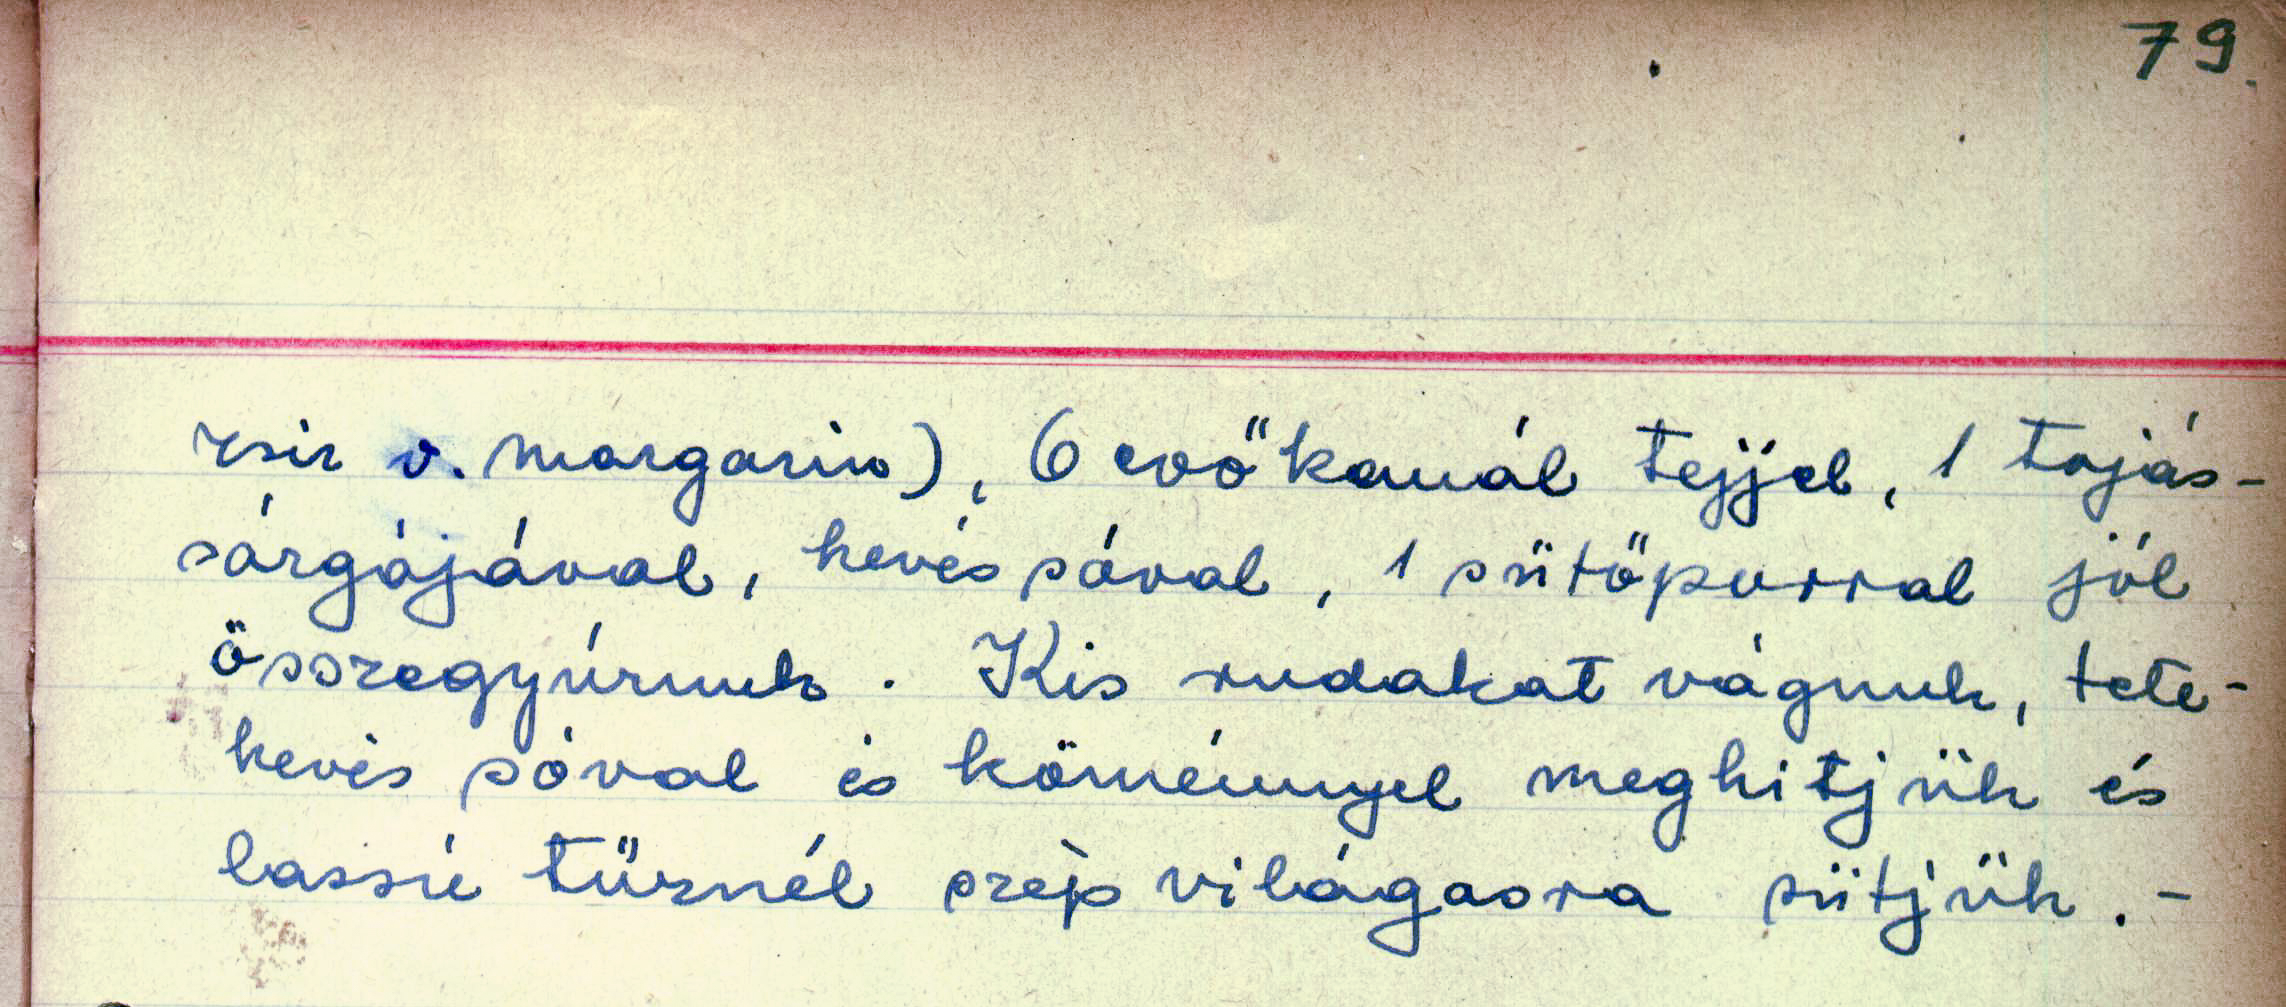 79.
zsir v. margarin), 6 evőkanál tejjel, 1 tojás-
sárgájával, kevés sóval, 1 sütőporral jól
összegyúrunk. Kis rudakat vágunk, tete-
kevés sóval és köménnyel meghitjük és
lassú tűznél szép világosra sütjük.-